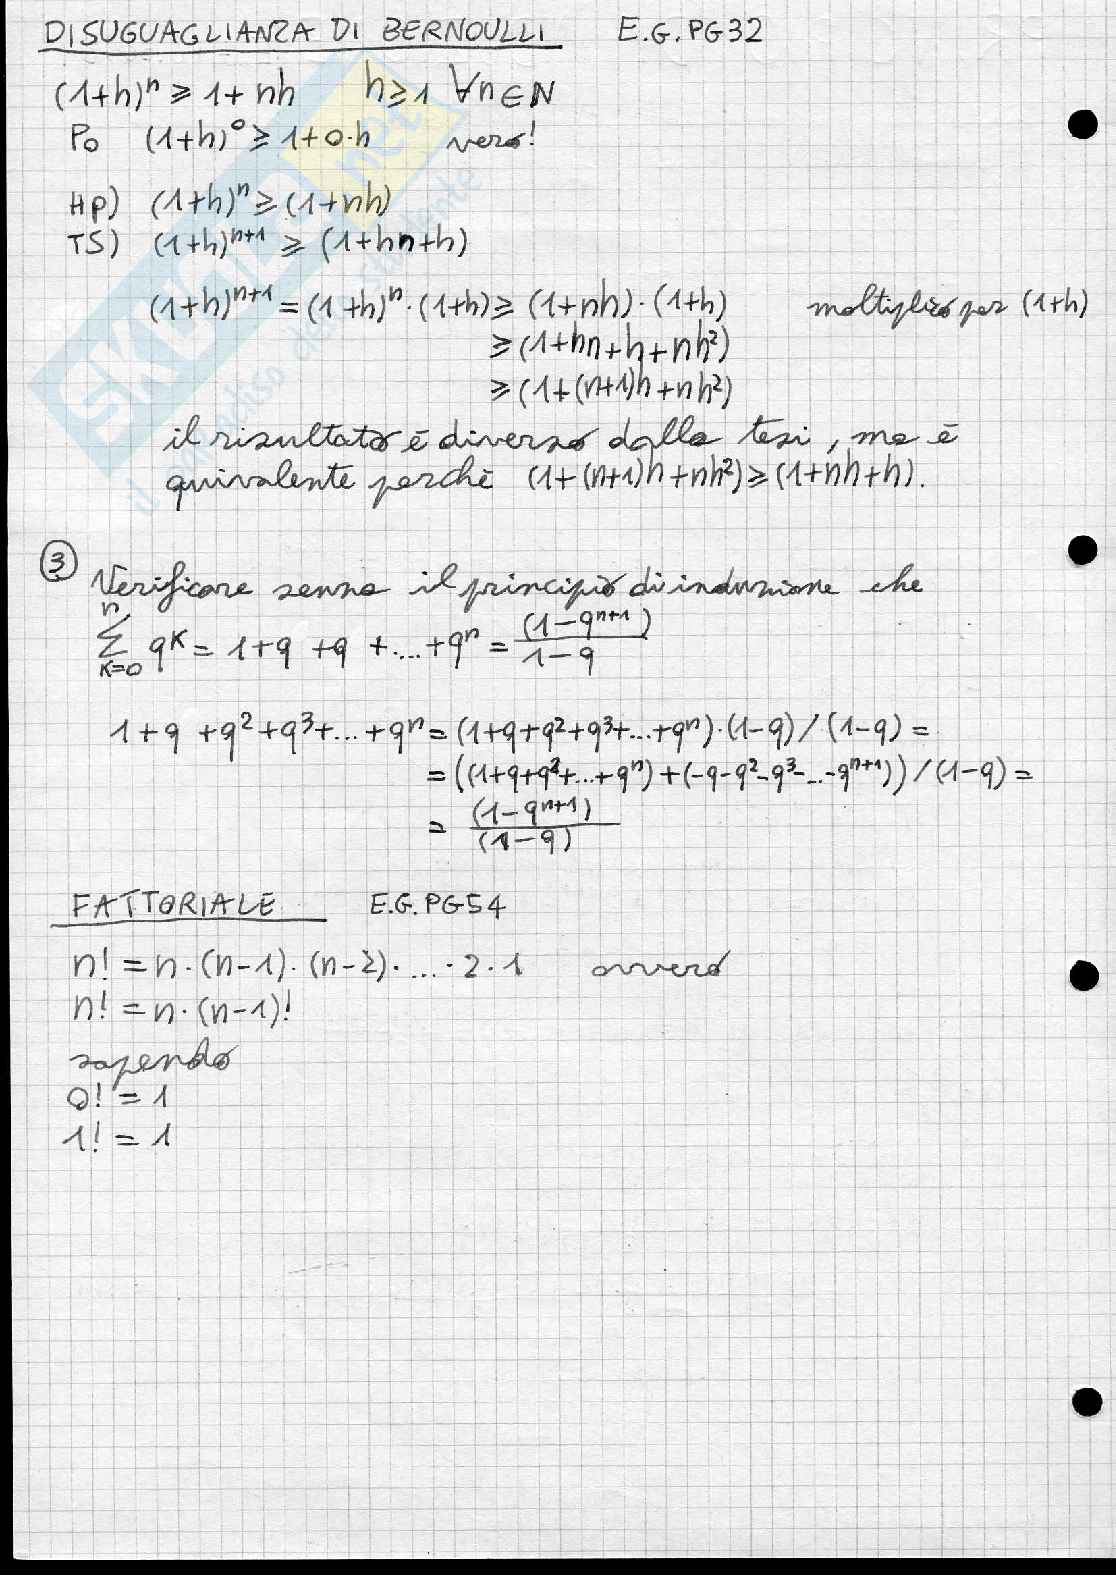 DISUGUAGLIANZA DI BERNOULLI E.G. PG32
(1+h)^n ≥ 1+nh h≥1 ∀n∈N
P0 (1+h)^0 ≥ 1+0·h vero!
Hp) (1+h)^n ≥ (1+nh)
TS) (1+h)^{n+1} ≥ (1+hn+h)
(1+h)^{n+1} = (1+h)^n·(1+h) ≥ (1+nh)·(1+h) moltiplico per (1+h)
≥ (1+hn+h+nh²)
≥ (1+(n+1)h+nh²)
il risultato è diverso dalla tesi, ma è
quivalente perchè (1+(n+1)h+nh²) ≥ (1+nh+h).
③ Verificare senza il principio di induzione che
∑_{K=0}^{n} q^K = 1+q+q+...+q^n = (1-q^{n+1})/1-q
1+q+q²+q³+...+q^n = (1+q+q²+q³+...+q^n)·(1-q)/(1-q) =
= ((1+q+q²+...+q^n)+(-q-q²-q³-...-q^{n+1}))/(1-q) =
= (1-q^{n+1})/(1-q)
FATTORIALE E.G. PG54
n! = n·(n-1)·(n-2)·...·2·1 ovvero
n! = n·(n-1)!
sapendo
0! = 1
1! = 1